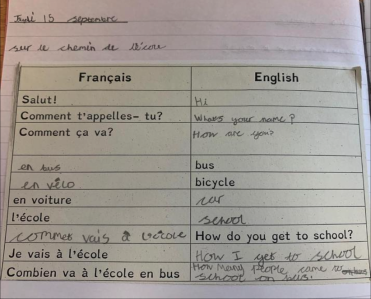 Jeudi 15 septembre
sur le chemin de l'école
Français English
Salut! Hi
Comment t'appelles- tu? Whats your name?
Comment ça va? How are you?
en bus bus
en vélo bicycle
en voiture car
l'école school
commet vais à l'école How do you get to school?
Je vais à l'école How I get to school
Combien va à l'école en bus How many people came to
school on bus.